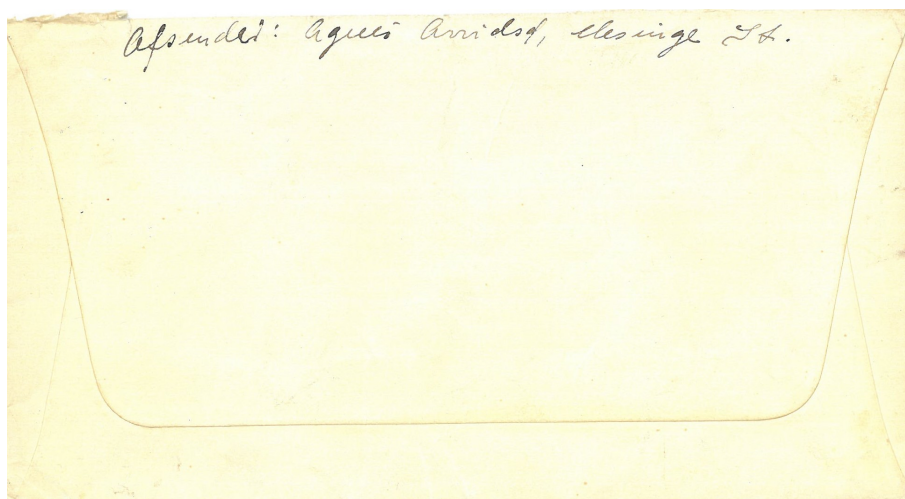 Afsender: Agnes Arvidsd, Mesinge St.